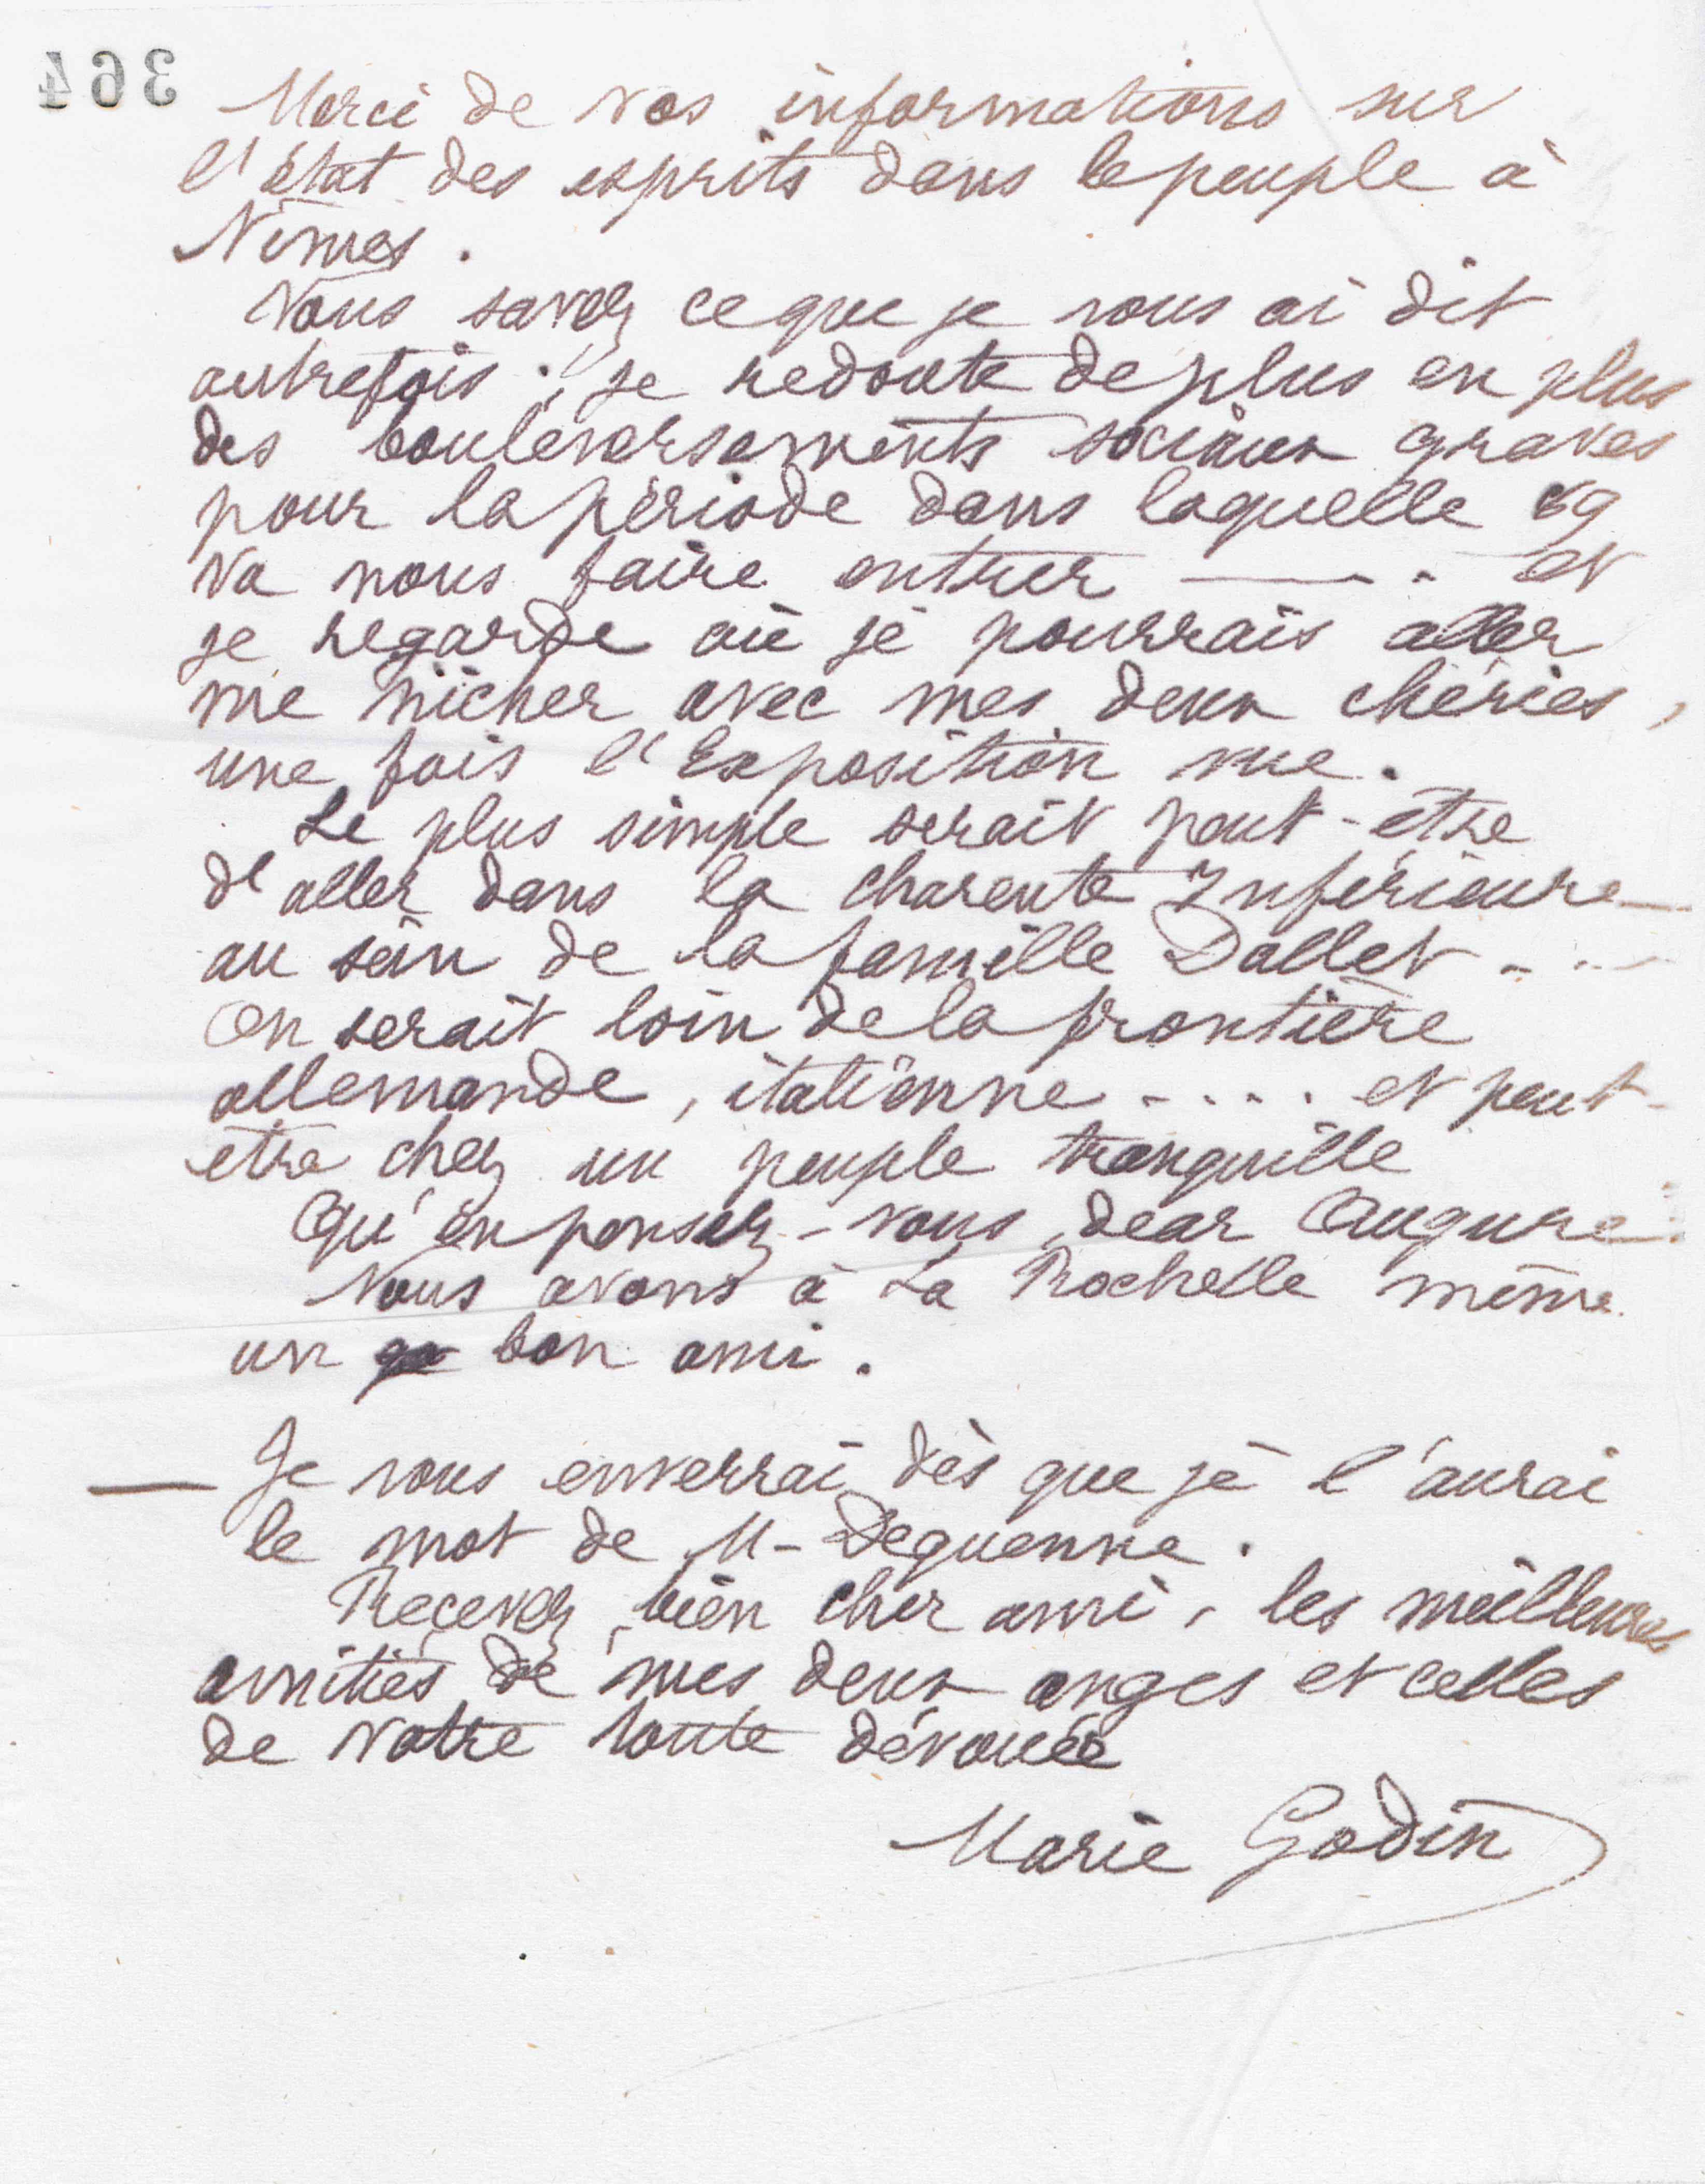 364
Merci de vos informations sur
l'état des esprits dans le peuple à
Nîmes.
Vous savez ce que je vous ai dit
autrefois ; je redoute de plus en plus
des bouleversements sociaux graves
pour la période dans laquelle 89
va nous faire entrer —... et
je regarde où je pourrais aller
me nicher avec mes deux chéries,
une fois l'Exposition vue.
Le plus simple serait peut-être
d'aller dans la Charente Inférieure—
au sein de la famille Dallet ...
On serait loin de la frontière
allemande, italienne ..... et peut-
être chez un peuple tranquille
Qu'en pensez-vous, dear Augure.
Nous avons à La Rochelle même
un bon ami.
— Je vous enverrai dès que je l'aurai
le mot de M- Dequenne.
Recevez, bien cher ami, les meilleures
amitiés de mes deux anges et celles
de votre toute dévouée
Marie Godin